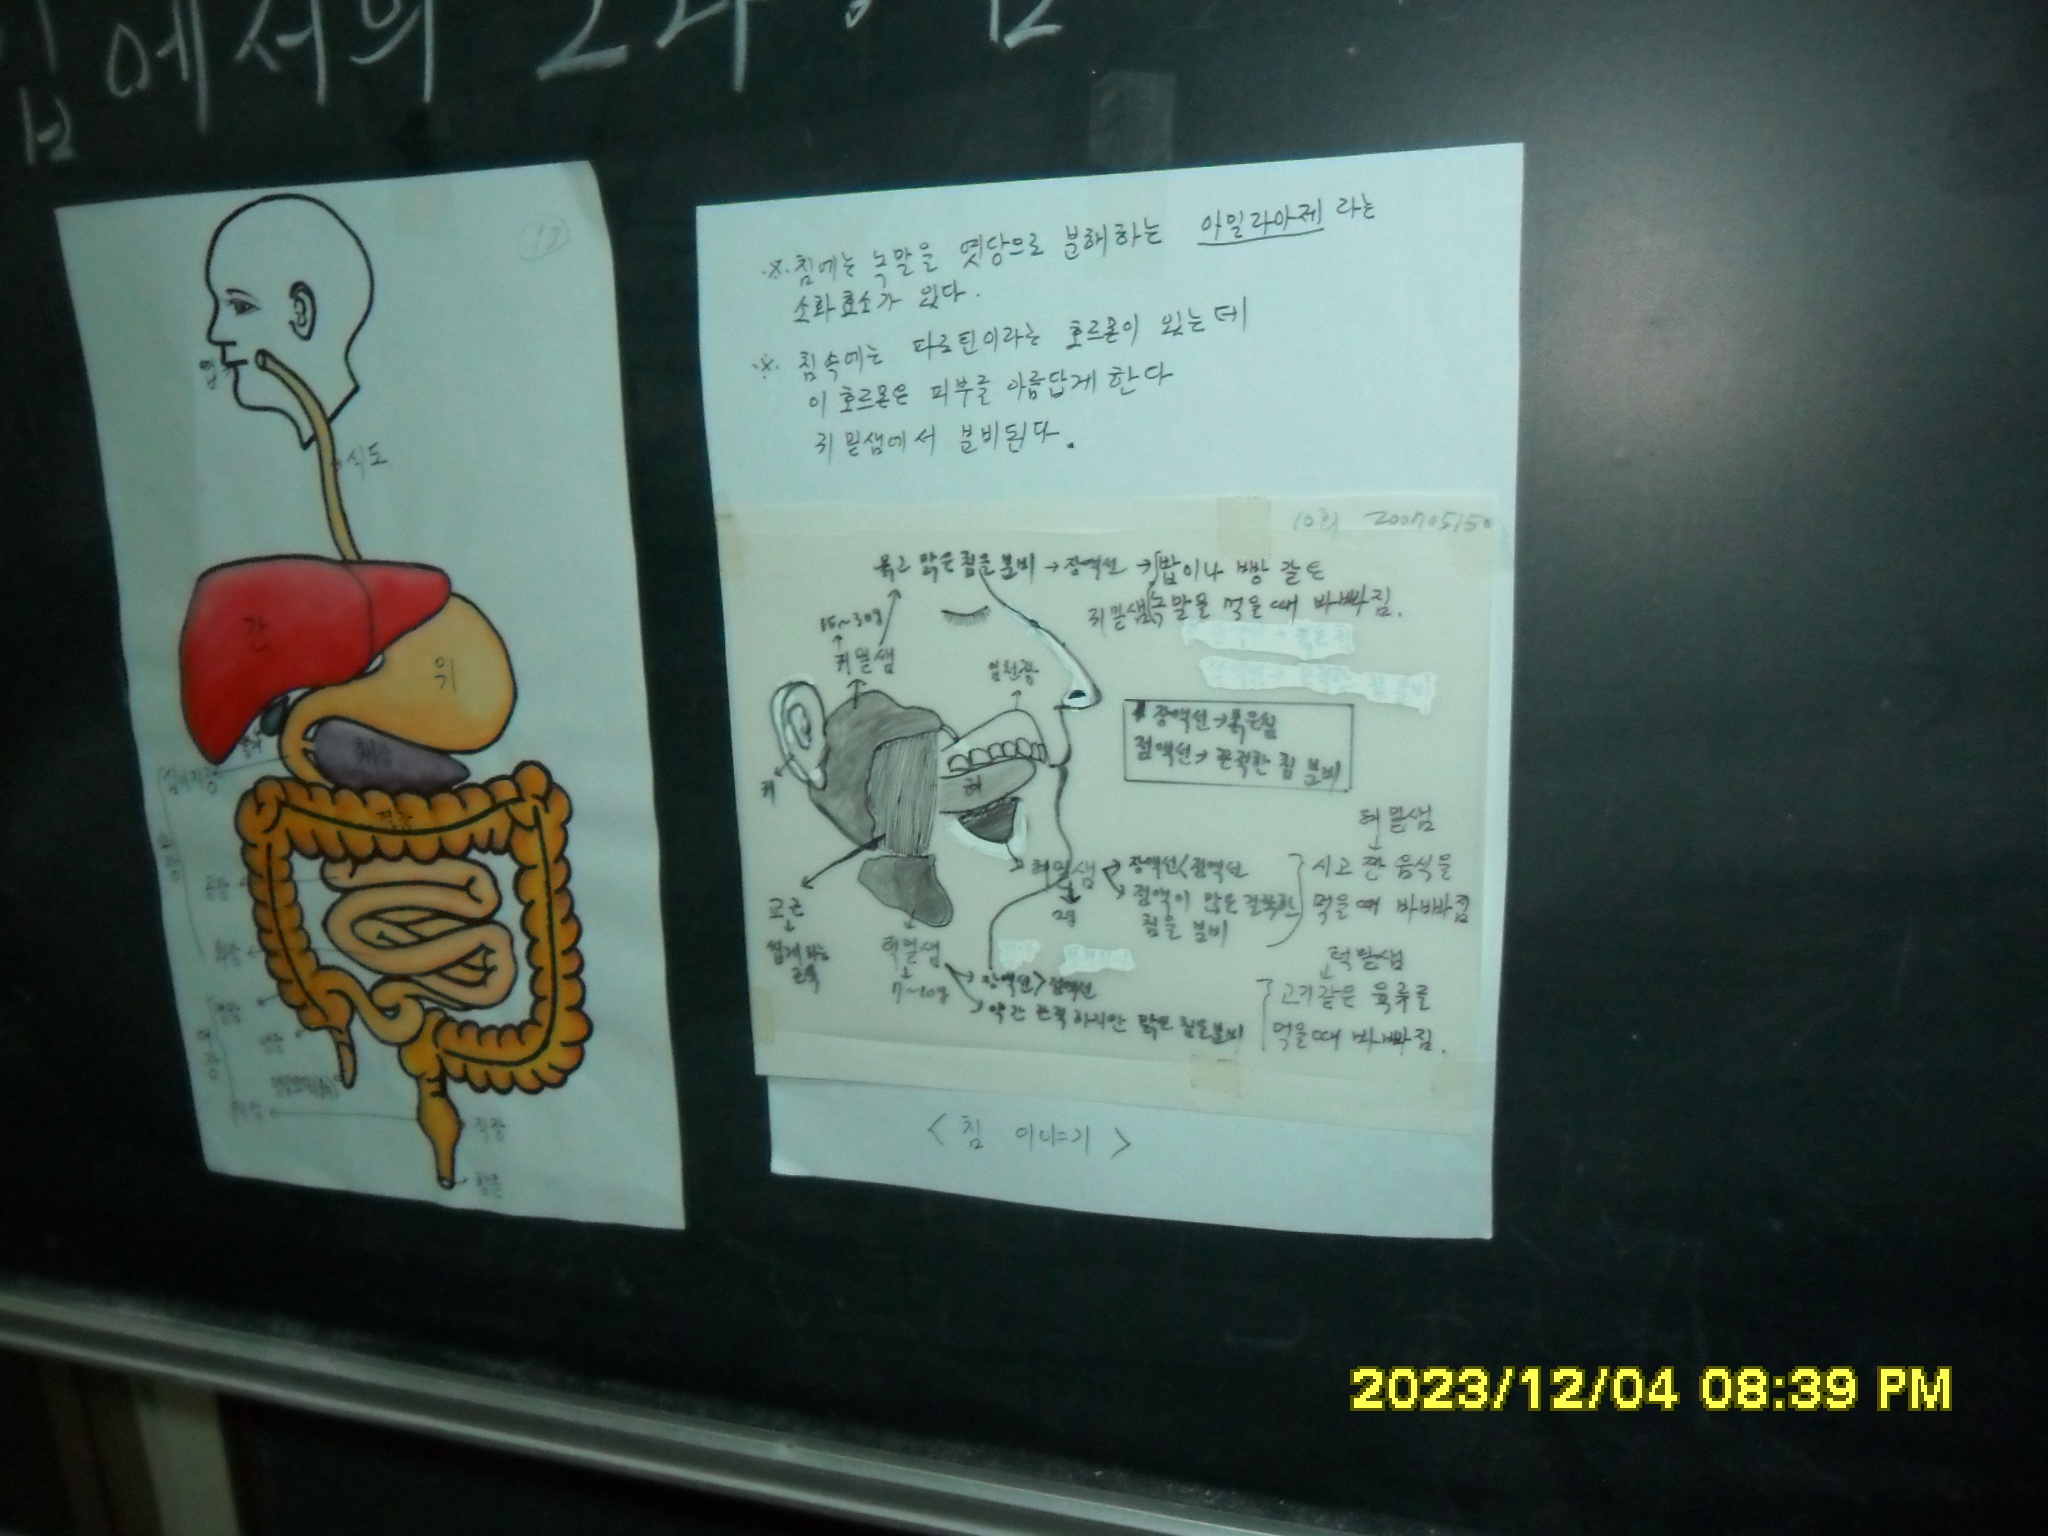 에서의
입
식도
간
위
췌장
십이지장
소장
공장
회장
결장
맹장
대장
직장
직장
항문
※ 침에는 녹말을 엿당으로 분해하는 아밀라아제 라는
소화효소가 있다.
※ 침속에는 파로틴이라는 호르몬이 있는데
이 호르몬은 피부를 아름답게 한다
귀밑샘에서 분비된다.
10회 20070515
묽고 맑은 침을 분비 → 장액선 → 밥이나 빵 같은
귀밑샘 녹말을 먹을때 바빠짐.
15~30g
귀밑샘
입천장
장액선 → 묽은침
점액선 → 끈적한 침 분비
귀
혀
혀밑샘
혀밑샘 → 장액선<점액선
시고 짠 음식을
점액이 많은 걸쭉한
먹을때 바빠짐
침을 분비
2g
교근
씹게 하는
근육
턱밑샘
7~10g
장액선>점액선
약간 끈적하지만 맑은 침을분비
턱밑샘
고기같은 육류를
먹을때 바빠짐.
<침 이야기>
2023/12/04 08:39 PM